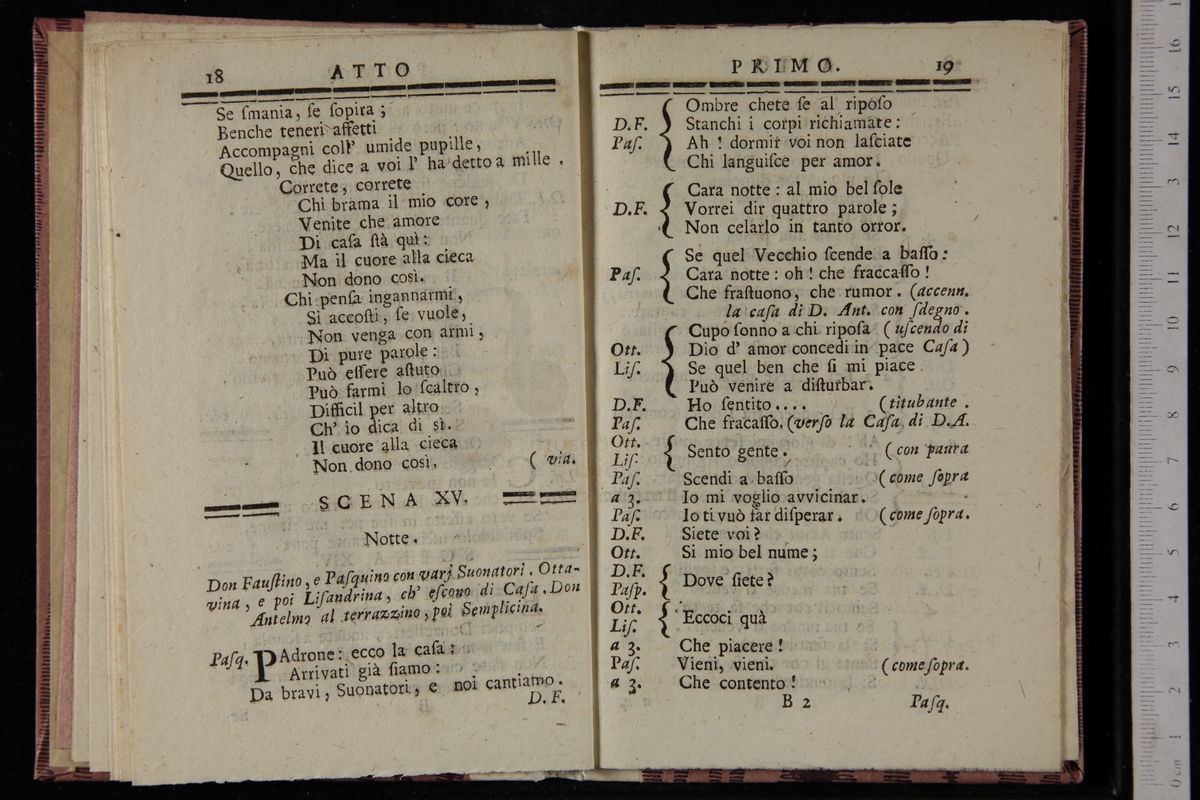 18 ATTO
Se ſmania, ſe ſopira;
Benche teneri affetti
Accompagni coll' umide pupille,
Quello, che dice a voi l' ha detto a mille.
Correte, correte
Chi brama il mio core,
Venite che amore
Di caſa ſtà quì:
Ma il cuore alla cieca
Non dono così.
Chi penſa ingannarmi,
Si accoſti, ſe vuole,
Non venga con armi,
Di pure parole:
Può eſſere aſtuto
Può farmi lo ſcaltro,
Difficil per altro
Ch' io dica di sì.
Il cuore alla cieca
Non dono così. ( via.
SCENA XV.
Notte.
Don Fauſtino, e Paſquino con varj Suonatori. Otta-
vina, e poi Liſandrina, ch' eſcono di Caſa. Don
Antelmo al terrazzino, poi Semplicina.
Paſq. PAdrone: ecco la caſa:
Arrivati già ſiamo:
Da bravi, Suonatori, e noi cantiamo.
D. F.
PRIMO. 19
Ombre chete ſe al ripoſo
D.F. Stanchi i corpi richiamate:
Paſ. Ah ! dormir voi non laſciate
Chi languiſce per amor.
Cara notte: al mio bel ſole
D.F. Vorrei dir quattro parole;
Non celarlo in tanto orror.
Se quel Vecchio ſcende a baſſo:
Paſ. Cara notte: oh ! che fraccaſſo !
Che fraſtuono, che rumor. (accenn.
la caſa di D. Ant. con ſdegno.
Cupo ſonno a chi ripoſa ( uſcendo di
Ott. Dio d' amor concedi in pace Caſa)
Liſ. Se quel ben che ſi mi piace
Può venire a diſturbar.
D.F. Ho ſentito.... (titubante.
Paſ. Che fracaſſo. (verſo la Caſa di D.A.
Ott.
Sento gente. (con paura
Liſ.
Paſ. Scendi a baſſo (come ſopra
a 3. Io mi voglio avvicinar.
Paſ. Io ti vuò far diſperar. (come ſopra.
D.F. Siete voi?
Ott. Si mio bel nume;
D.F.
Dove ſiete?
Paſp.
Ott.
Eccoci quà
Liſ.
a 3. Che piacere !
Paſ. Vieni, vieni. (come ſopra.
a 3. Che contento !
B 2 Paſq.
16
15
14
13
12
11
10
9
8
7
6
5
4
3
2
1
0 cm